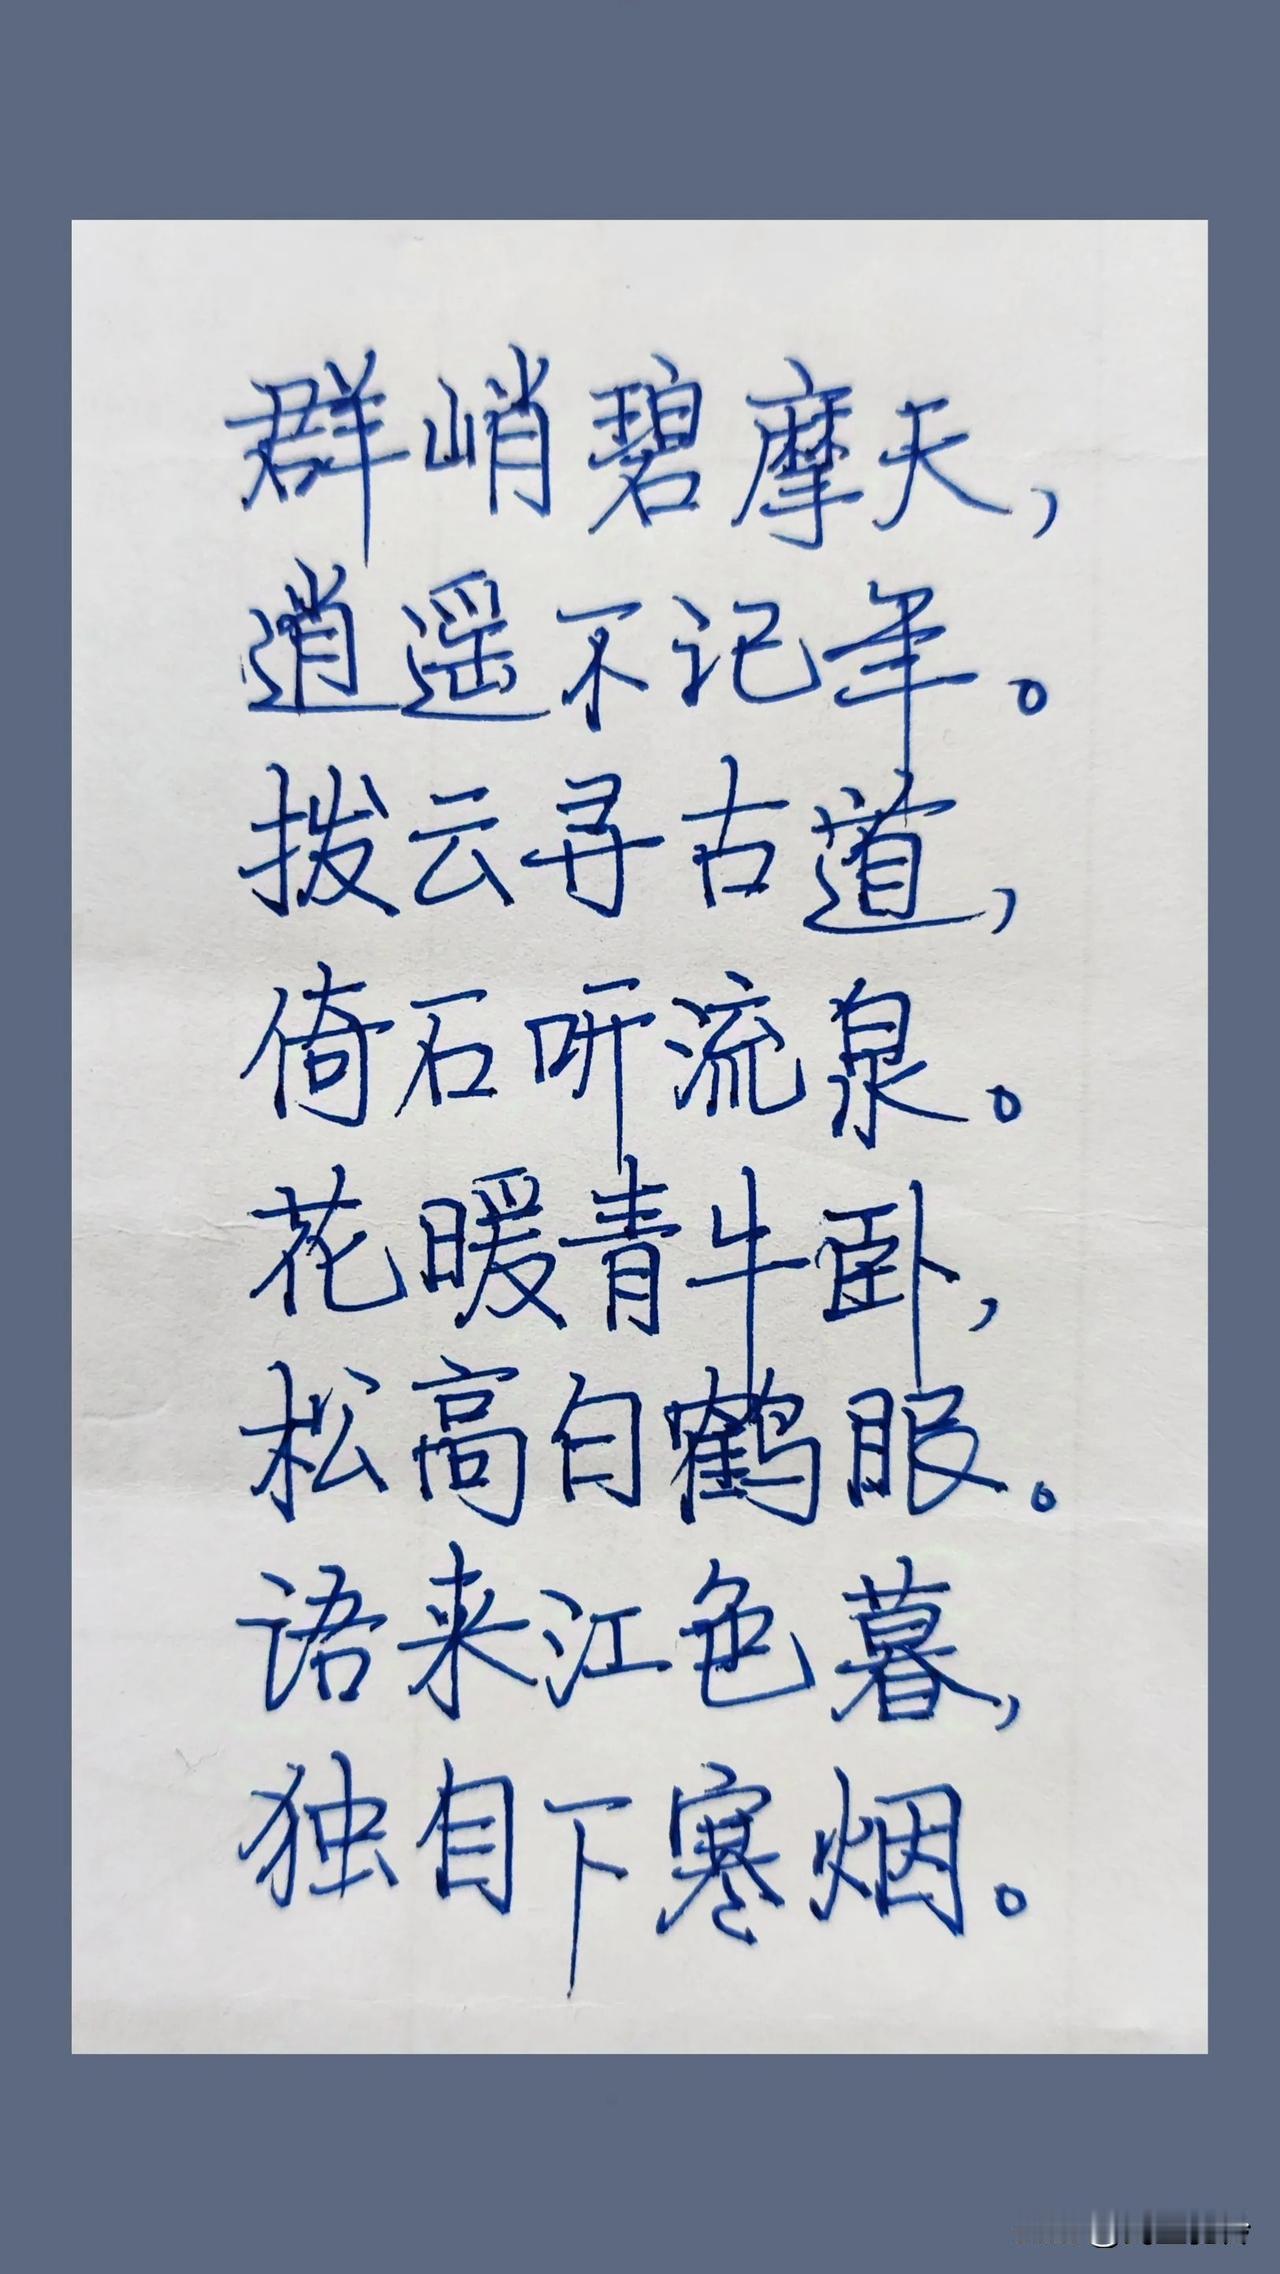 群峭碧摩天，
逍遥不记年。
拨云寻古道，
倚石听流泉。
花暖青牛卧，
松高白鹤服。
语来江色暮，
独自下寒烟。